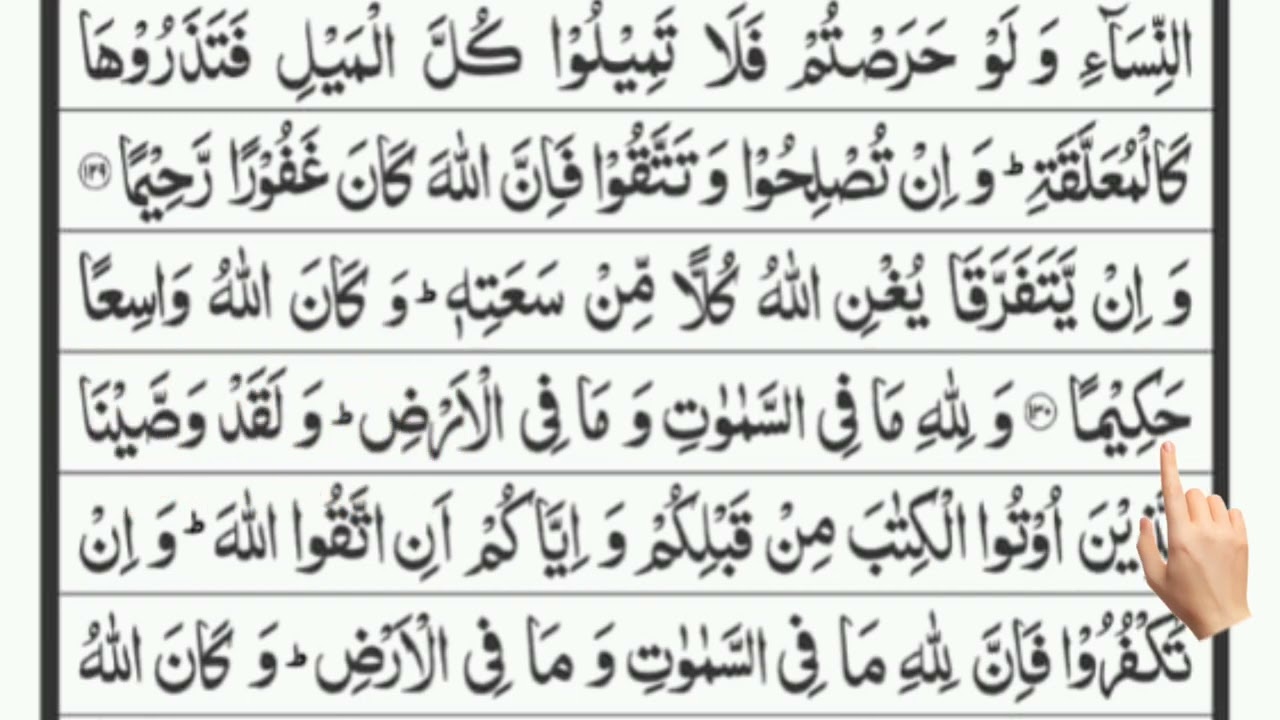 النِّسَآءِ وَ لَوْ حَرَصْتُمْ فَلَا تَمِیْلُوْا كُلَّ الْمَیْلِ فَتَذَرُوْهَا
كَالْمُعَلَّقَةِ ؕ وَ اِنْ تُصْلِحُوْا وَ تَتَّقُوْا فَاِنَّ اللّٰهَ كَانَ غَفُوْرًا رَّحِیْمًا ۝۱۲۹
وَ اِنْ یَّتَفَرَّقَا یُغْنِ اللّٰهُ كُلًّا مِّنْ سَعَتِهٖ ؕ وَ كَانَ اللّٰهُ وَاسِعًا
حَكِیْمًا ۝۱۳۰ وَ لِلّٰهِ مَا فِی السَّمٰوٰتِ وَ مَا فِی الْاَرْضِ ؕ وَ لَقَدْ وَصَّیْنَا
الَّذِیْنَ اُوْتُوا الْكِتٰبَ مِنْ قَبْلِكُمْ وَ اِیَّاكُمْ اَنِ اتَّقُوا اللّٰهَ ؕ وَ اِنْ
تَكْفُرُوْا فَاِنَّ لِلّٰهِ مَا فِی السَّمٰوٰتِ وَ مَا فِی الْاَرْضِ ؕ وَ كَانَ اللّٰهُ